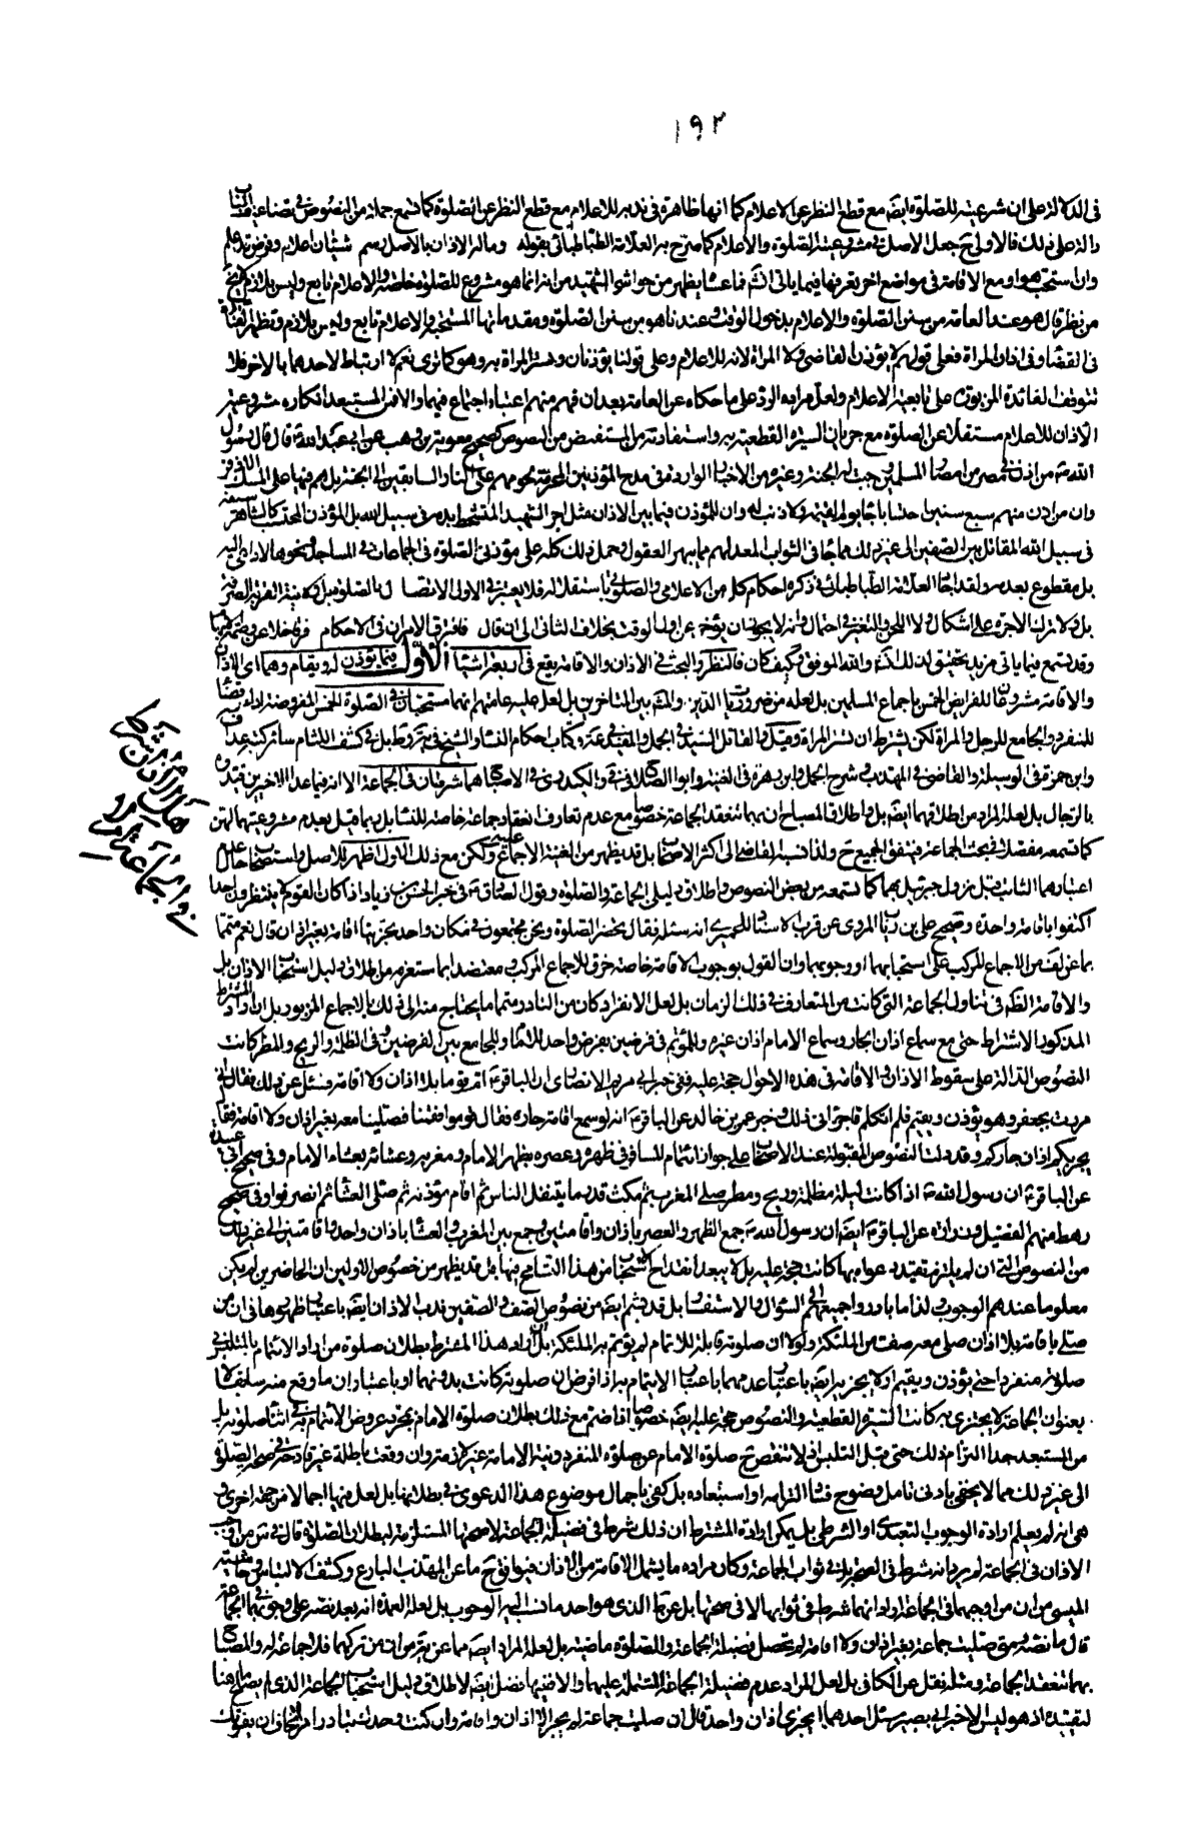 ١٩٣
في الدلالة على ان شرعيته للصلوة ايضا مع قطع النظر عن الاعلام كما انها ظاهرة في ندبه للاعلام مع قطع النظر عن الصلوة كما تسمع جملة من النصوص في تضاعيف الباب
دالة على ذلك فالاولى ح جعل الاصل في مشروعيته الصلوة والاعلام كما صرح به العلامة الطباطبائي بقوله وما له الاذان بالاصل رسم شيئان اعلام وفرض
وان استحب هو او مع الاقامة في مواضع اخر تعرفها فيما ياتي انش فما عساه يظهر من حواشي الشهيد من انه انما هو مشروع للصلوة خاصة والاعلام تابع وليس بلازم
من نظر قال هو عند العامة من سنن الصلوة والاعلام بدخول الوقت وعندنا هو من سنن الصلوة ومقدماتها المستحبة والاعلام تابع وليس بلازم وتظهر الفائدة
في القضاء وفي اذان المراة فعلى قولهم لا يؤذن القاضي ولا المراة لانه للاعلام وعلى قولنا يؤذنان وتسر المراة به وهو كما ترى نعم لا ارتباط لاحدهما بالاخر فلا
تتوقف الفائدة المزبورة على تابعية الاعلام ولعل مراده الرد على ما حكاه عن العامة بعد ان فهم منهم اعتبار اجتماع فيهما والا فمن المستبعد انكاره مشروعية
الاذان للاعلام مستقلا عن الصلوة مع جريان السيرة القطعية به واستفادته من المستفيض من النصوص كصحيح معوية بن وهب عن ابي عبد الله ع قال قال رسول
الله ص من اذن في مصر من امصار المسلمين وجبت له الجنة وغيره من الاخبار الواردة في مدح المؤذنين
وان من اذن منهم سبع سنين احتسابا جاء يوم القيمة ولا ذنب له وان للمؤذن فيما بين الاذان مثل اجر الشهيد المتشحط بدمه في سبيل الله بل المؤذن المحتسب كالشاهر
في سبيل الله المقاتل بين الصفين الى غير ذلك مما جاء في الثواب المعد لهم مما يبهر العقول وحمل ذلك كله على مؤذني الصلوة في الجماعات في المساجد ونحوها لا داعي اليه
بل مقطوع بعدمه ولقد اجاد العلامة الطباطبائي في ذكره احكام كل من الاعلامي والصلوتي باستقلاله فلا يعتبر في الاول الاتصال بالصلوة
بل ولا ترك الاجرة على اشكال ولا اللحن والتغيير في احتمال وانه لا يجوز ان يؤخر عن اول الوقت بخلاف الثاني الى ان قال فافترق الامران في الاحكام
وقد تسمع فيما ياتي مزيد تحقيق لذلك انش والله الموفق وكيف كان فالنظر والبحث في الاذان والاقامة يقع في اربعة اشياء الاول فيما يؤذن له ويقام وهما اي الاذان
والاقامة مشروعان للفرايض الخمس باجماع المسلمين بل لعله من ضروريات الدين والمش بين المتاخرين بل لعل عليه عامتهم انهما مستحبان في الصلوة الخمس المفروضة اداء وقضاء
للمنفرد والجامع للرجل والمراة لكن يشترط ان تسر المراة وقيل والقائل السيد في الجمل والمفيد في
وابن حمزة في الوسيلة والقاضي في المهذب وشرح الجمل وابن زهرة في الغنية وابو الصلاح في والكيدري في الاصباح هما شرطان في الجماعة الا انه فيما عدا الاخيرين قيده
بالرجال بل لعله المراد من اطلاقهما ايضا بل واطلاق المصباح ان بهما تنعقد الجماعة خصوصا مع عدم تعارف انعقاد جماعة خاصة للنساء بل ربما قيل بعدم مشروعيتهما لهن
كما تسمعه مفصلا في بحث الجماعة فيتفق الجميع ح ولذا نسبه الفاضل الى اكثر الاصحاب بل قد يظهر من الغنية الاجماع عليه ولكن مع ذلك الاول اظهر للاصل واستصحاب حال
اعتبارهما الثابت قبل نزول جبرئيل بهما كما تسمعه من بعض النصوص واطلاق دليلي الجماعة والصلوة وقول الصادق ع في خبر الحسن بن زياد اذا كان القوم لا ينتظرون احدا
اكتفوا باقامة واحدة وصحيح علي بن رئاب المروي عن قرب الاسناد للحميري انه سئله فقال تحضر الصلوة ونحن مجتمعون في مكان واحد يجزينا اقامة بغير اذان قال نعم متمما
بما عن لف من الاجماع المركب على استحبابهما او وجوبهما وان القول بوجوب الاقامة خاصة خرق للاجماع المركب ومعتضدا بما ستعرفه من اطلاق دليل استحباب الاذان بل
والاقامة الظ في تناول الجماعة التي كانت من المتعارف في ذلك الزمان بل لعل الانفراد كان من النادر
المذكور بالاشتراط حتى مع سماع اذان الجار وسماع الامام اذان غيره وللمؤتم في فرضين بفرض واحد للامام وللجامع بين الفرضين وفي الظلمة والريح والمطر كانت
النصوص الدالة على سقوط الاذان والاقامة في هذه الاحوال حجة عليه ففي خبر ابي مريم الانصاري ان الباقر ع ام قوما بلا اذان ولا اقامة وسئل عن ذلك فقال اني
مررت بجعفر وهو يؤذن ويقيم فلم اتكلم فاجزاني ذلك وخبر عمرو بن خالد عن الباقر ع انه لو سمع اقامة جاره فقال قوموا فقمنا فصلينا معه بغير اذان ولا اقامة فقال
يجزيكم اذان جاركم وقد دلت النصوص المقبولة عند الاصحاب على جواز ائتمام المسافر في ظهره وعصره بظهر الامام ومغربه وعشائه بعشاء الامام وفي صحيح ابي عبيدة
عن الباقر ع ان رسول الله ص اذا كانت ليلة مظلمة وريح ومطر صلى المغرب ثم مكث قدر ما يتنفل الناس ثم اقام مؤذنه ثم صلى العشاء ثم انصرفوا وفي صحيح
رهط منهم الفضيل وزرارة عن الباقر ع ايضا ان رسول الله ص جمع الظهر والعصر باذان واقامتين وجمع بين المغرب والعشاء باذان واحد واقامتين الى غير ذلك
من النصوص التي ان لم يلتزم تقييد دعواه بها كانت حجة عليه بل لا يبعد انقداح الاستحباب من هذا التسامح فيها بل قد يظهر من خصوص الاولين ان الحاضرين لم يكن
معلوما عندهم الوجوب ولذا ما بادروا جميعهم الى السؤال والاستفسار بل قد يشم ايضا من نصوص الصف والصفين ندب الاذان ايضا باعتبار ظهورها في ان من
صلى باقامة بلا اذان صلى معه صف من الملئكة ولولا ان صلوته قابلة للائتمام لم يؤتم به الملئكة بل لو اراد هذا المشترط بطلان صلوة من اراد الائتمام
صلاته منفردا حتى يؤذن ويقيم او لا يجزيه ايضا باعتبار عدمهما باعتبار الايتمام به اذا فرض ان صلوته كانت بدونهما او باعتبار ان ما وقع منه سابقا لا
بعنوان الجماعة لا يجتزى به كانت السيرة القطعية والنصوص حجة عليه ايضا خصوصا اذا ضم مع ذلك بطلان صلوة الامام بمجرد عروض الائتمام به في اثناء صلوته بل
من المستبعد جدا التزام ذلك حتى قبل التلبس اذ لا تنقص ح صلوة الامام عن صلوة المنفرد ونية الامامة غير لازمة وان وقعت باطلة غير قادحة في صحة الصلوة
الى غير ذلك مما لا يخفى بادنى تامل وضوح فساد التزامه او استبعاده بل كفى باجمال موضوع هذا الدعوى في بطلانها بل لعل فيها اجمالا من جهة اخرى و
هي انه لم يعلم ارادة الوجوب التعبدي او الشرطي بل يمكن ارادة المشترط ان ذلك شرط في فضيلة الجماعة لا صحتها المستلزمة لبطلان الصلوة قال في من اوجب
الاذان في الجماعة لم يرد انه شرط في الصحة بل في ثواب الجماعة وكان مراده ما يشمل الاقامة من الاذان فيوافق ح ما عن المهذب البارع وكشف الالتباس وحاشية
الميسي من ان من اوجبهما في الجماعة اراد انهما شرط في ثوابها لا في صحتها بل عن ط الذي هو احد ما نسب اليه الوجوب بل لعله العمدة انه بعد نصه على وجوبهما في الجماعة
قال ما نصه ومتى صليت جماعة بغير اذان ولا اقامة لم تحصل فضيلة الجماعة والصلوة ماضية بل لعله المراد ايضا مما عن غيره من ان من تركهما فلا جماعة له والمصباح
بهما تنعقد الجماعة ومثله نقل عن الكافي بل لعل المراد عدم فضيلة الجماعة المشتملة عليهما والا فنفيهما فضل ايضا لاطلاق دليل استحباب الجماعة الذي لم يصلح ما هنا
لتقييده اذ هو ليس الا خبر ابي بصير سئل احدهما ايجزي اذان واحد قال ان صليت جماعة لم يجز الا اذان واقامة وان كنت وحدك تبادر امرا تخاف ان يفوتك
هل الاذان شرط
في الجماعة ام لا